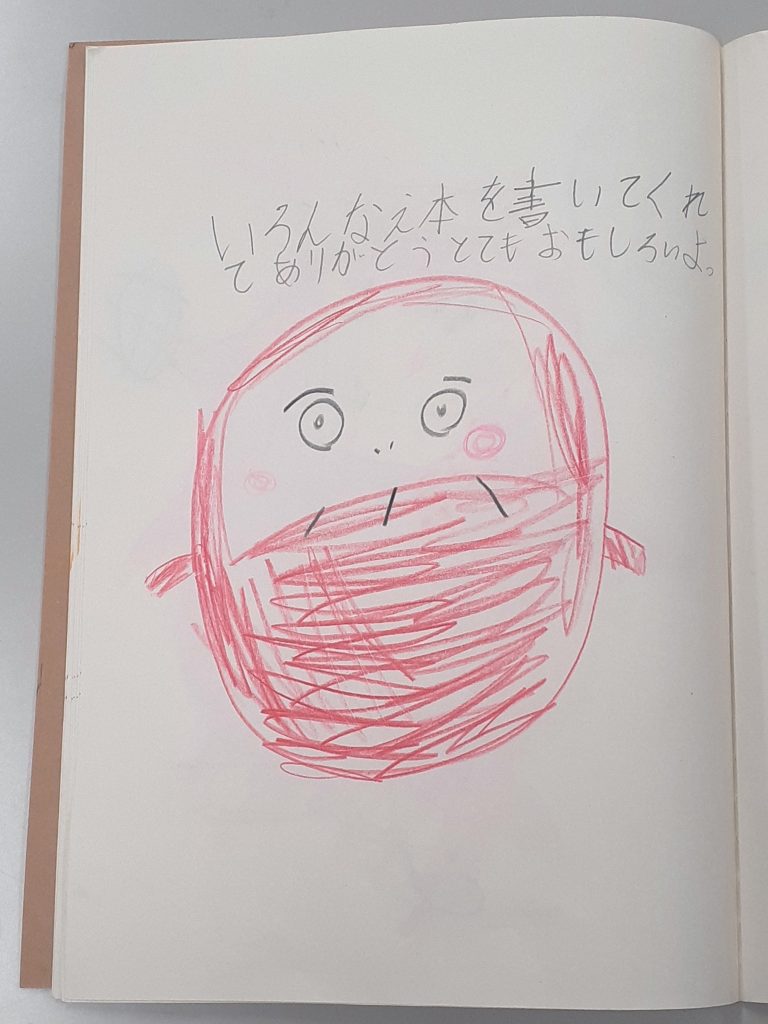 いろんなえ本を書いてくれ
てありがとうとてもおもしろいよ。